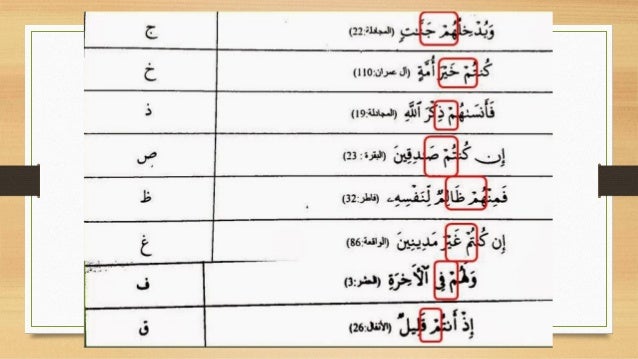 وَيُدْخِلُهُمْ جَنَّٰتٍ (المجادلة:22) ج
كُنتُمْ خَيْرَ أُمَّةٍ (آل عمران:110) خ
فَأَنسَىٰهُمْ ذِكْرَ ٱللَّهِ (المجادلة:19) ذ
إِن كُنتُمْ صَٰدِقِينَ (البقرة : 23) ص
فَمِنْهُمْ ظَالِمٌ لِّنَفْسِهِۦ (فاطر:32) ظ
إِن كُنتُمْ غَيْرَ مَدِينِينَ (الواقعة:86) غ
وَلَهُمْ فِى ٱلْأَخِرَةِ (الحشر:3) ف
إِذْ أَنتُمْ قَلِيلٌ (الأنفال:26) ق